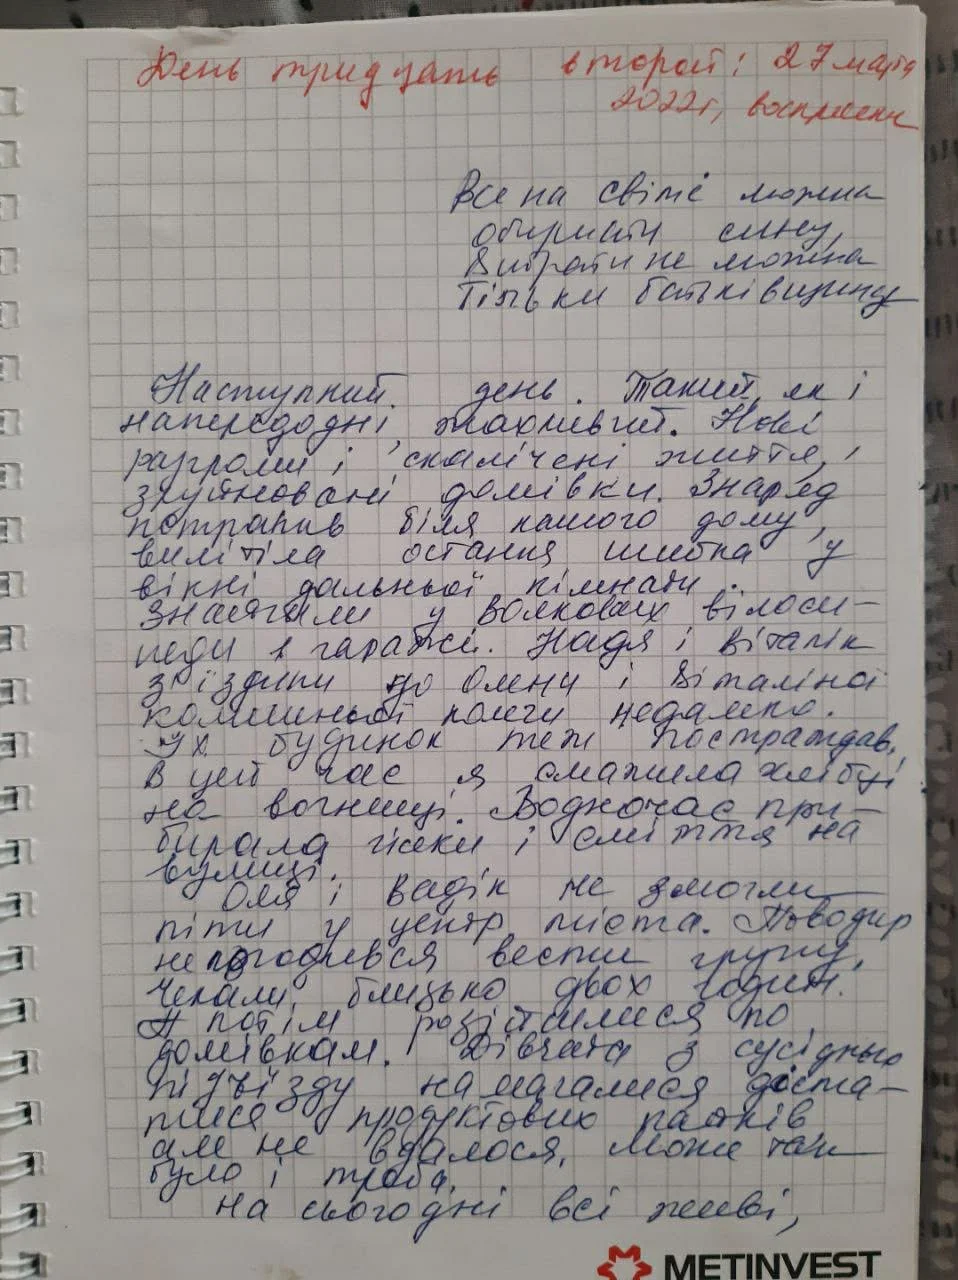 День тридцать второй: 27 марта
2022г, воскресенье
Все на світі можна
обирати сину,
Вибрати не можна
Тільки батьківщину
Наступний день. Такий, як і
напередодні, жахливий. Нові
разгроми і скалічені життя,
зруйновані домівки. Знаряд
потрапив біля нашого дому,
вилітіла остання шибка у
вікні дальньої кімнати.
Знайшли у Волкових вілоси-
педи в гаражі. Надя і Віталік
з'їздили до Олени і Віталіної
колишньої колеги недалеко.
Їх будинок теж постраждав.
В цей час я смажила хлібці
на вогнищі. Водночас при-
бирала гілки і сміття на
вулиці.
Оля і Вадік не змогли
піти у центр міста. Поводир
не погодився вести групу,
Чекали близько двох годин.
А потім розійшлися по
домівкам. Дівчата з сусіднього
під'їзду намагалися діста-
тися продуктових пайків
але не вдалося. Може так
було і треба.
На сьогодні всі живі,
METINVEST